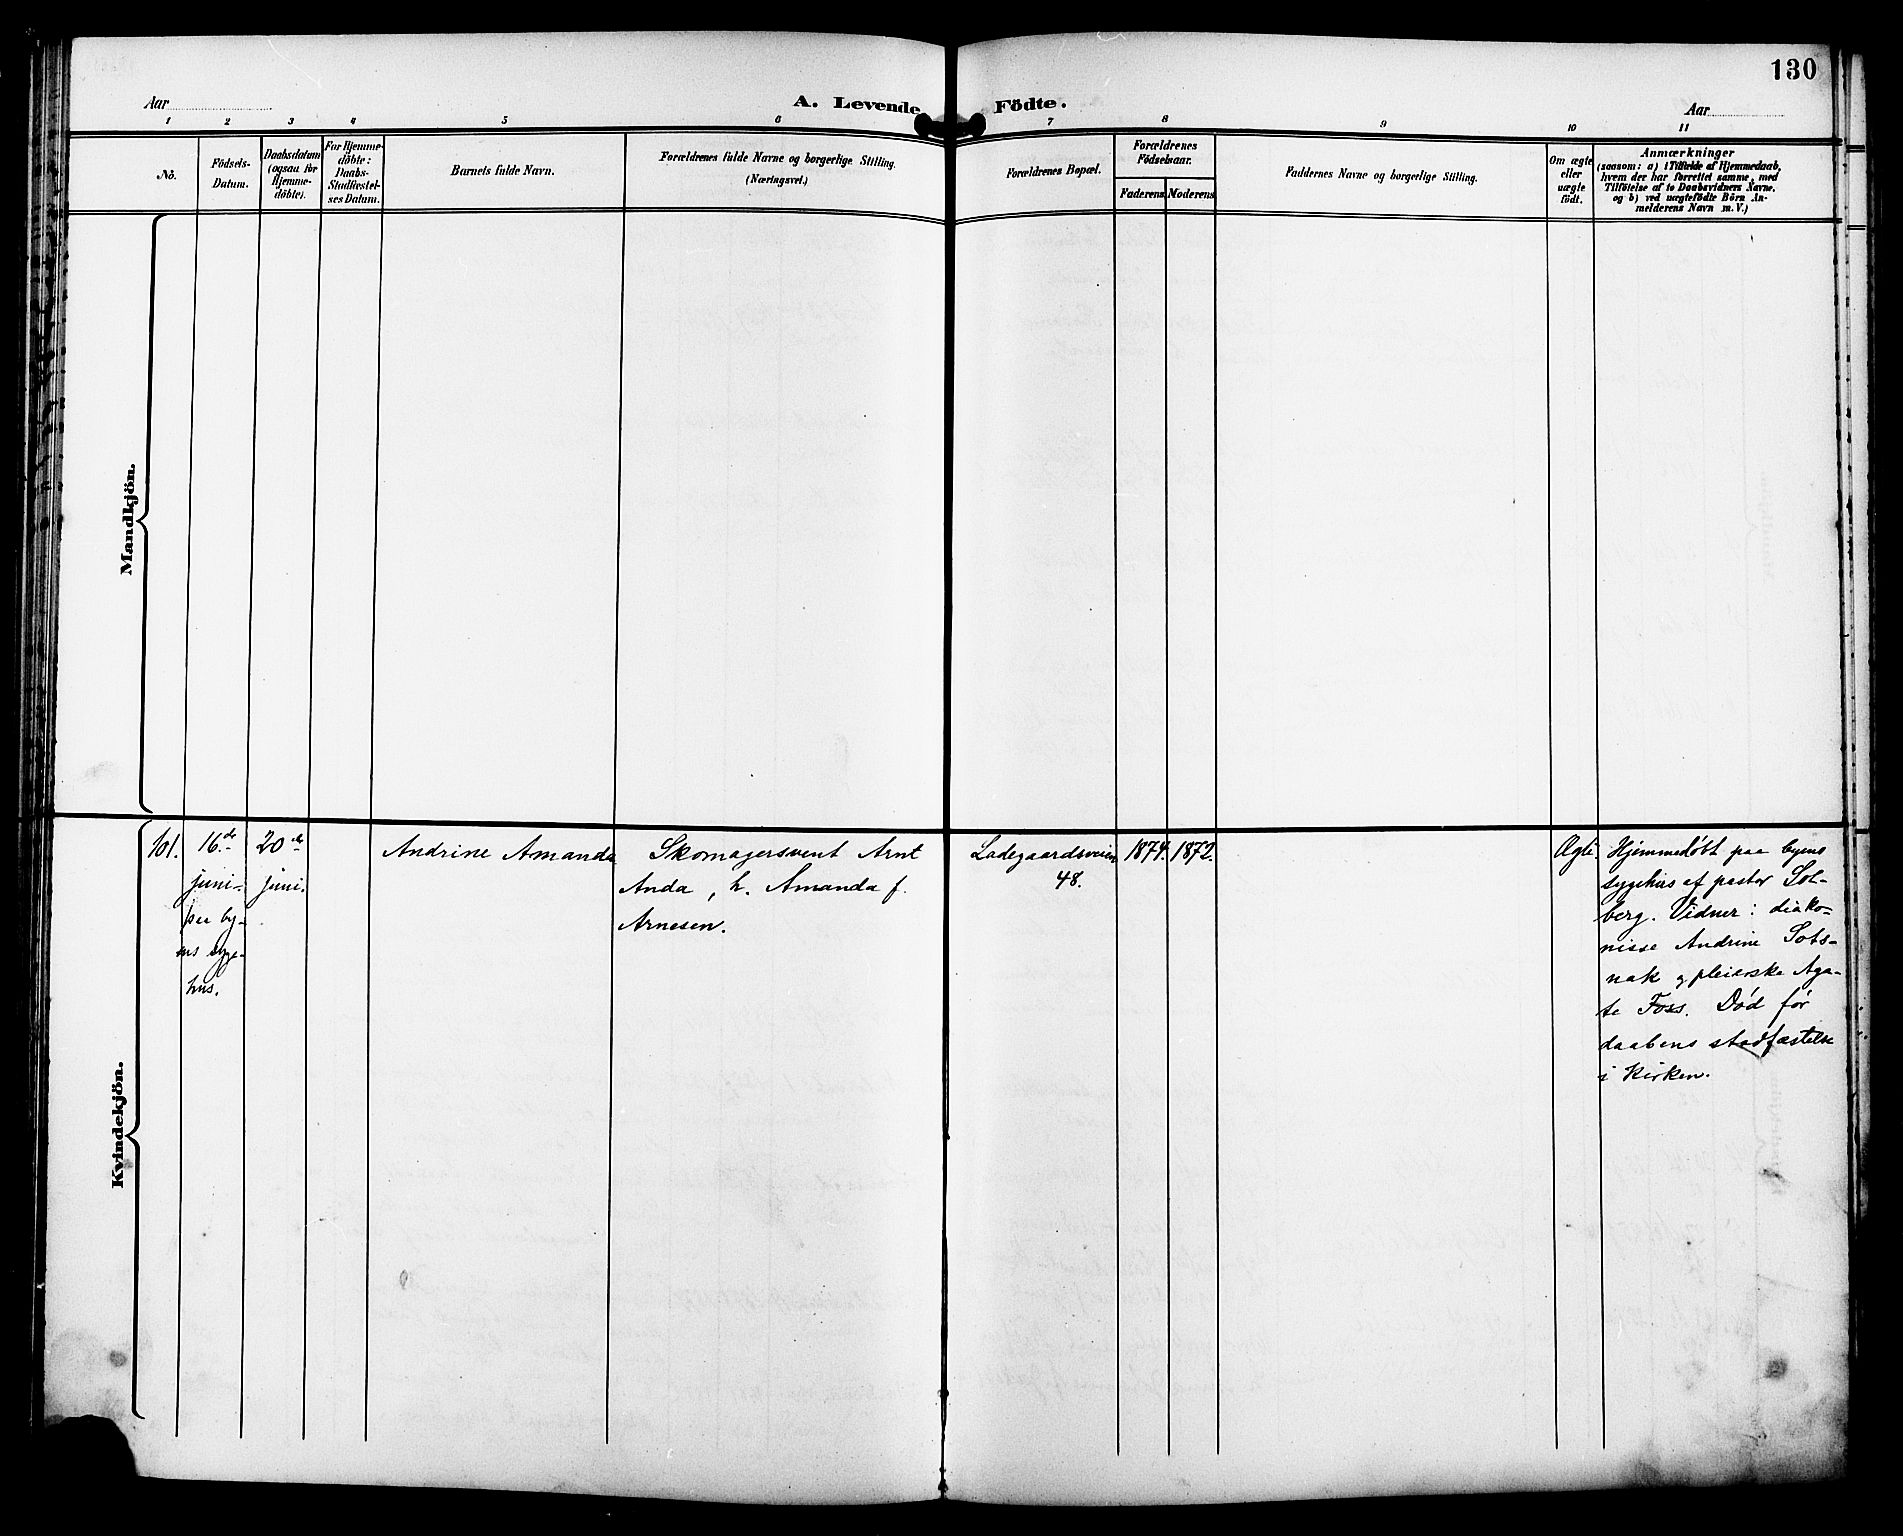 130
Aar
A. Levende Födte.
Aar
1 2 3 4 5 6 7 8 9 10 11
No.
Födsels-
Datum.
Daabsdatum
(ogsaa for
Hjemme-
döbte).
For Hjemme-
döbte:
Daabs-
Stadfæstel-
ses Datum.
Barnets fulde Navn.
Forældrenes fulde Navne og borgerlige Stilling.
(Næringsvei.)
Forældrenes Bopæl.
Forældrenes
Födselsaar.
Faderens
Moderens
Faddernes Navne og borgerlige Stilling.
Om ægte
eller
uægte
födt.
Anmærkninger
(saasom: a) i Tilfælde af Hjemmedaab,
hvem der har forrettet samme, med
Tilföielse af to Daabsvidners Navne.
og b) ved uægtefödte Börn An-
melderens Navn m. V.)
Mandkjön.
Kvindekjön.
101.
16.de
juni
paa by-
ens syge-
hus.
20de
juni.
Andrine Amanda
Skomagersvent Arnt
Anda, h. Amanda f.
Arnesen.
Ladegaardsveien
48.
1874.
1872.
Ægte.
Hjemmedøbt paa byens
sygehus af pastor Sol-
berg. Vidner: diako-
nisse Andrine Sots-
nak og pleierske Aga-
te Foss. Død før
daabens stadfæstelse
i kirken.